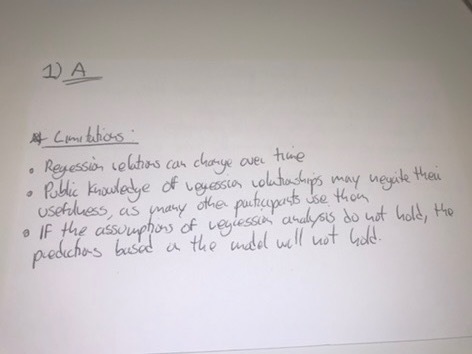 1) A
Limitations:
• Regression relations can change over time
• Public knowledge of regression relationships may negate their
usefulness, as many other participants use them
• IF the assumptions of regression analysis do not hold, the
predictions based on the model will not hold.